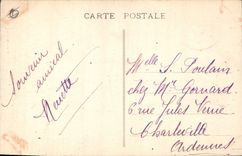 CARTE POSTALE
Souvenir
amical
Ninette
Melle S. Poulain
chez Mr Gornard
6 rue Jules Verne
Charleville
Ardennes